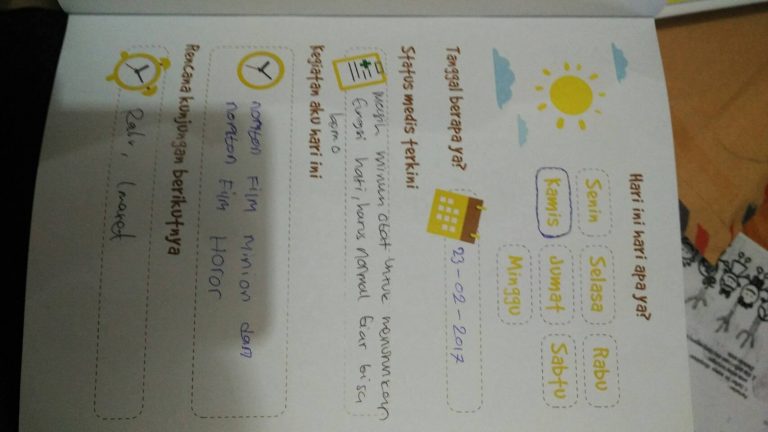 Hari ini hari apa ya?
Senin Selasa Rabu
Kamis Jumat Sabtu
Minggu
Tanggal berapa ya?
23-02-2017
Status medis terkini
masih minum obat untuk menurunkan
fungsi hati, harus normal biar bisa
kemo
Kegiatan aku hari ini
nonton Film minion dan
nonton Film Horor
Rencana kunjungan berikutnya
Rabu, 1 maret